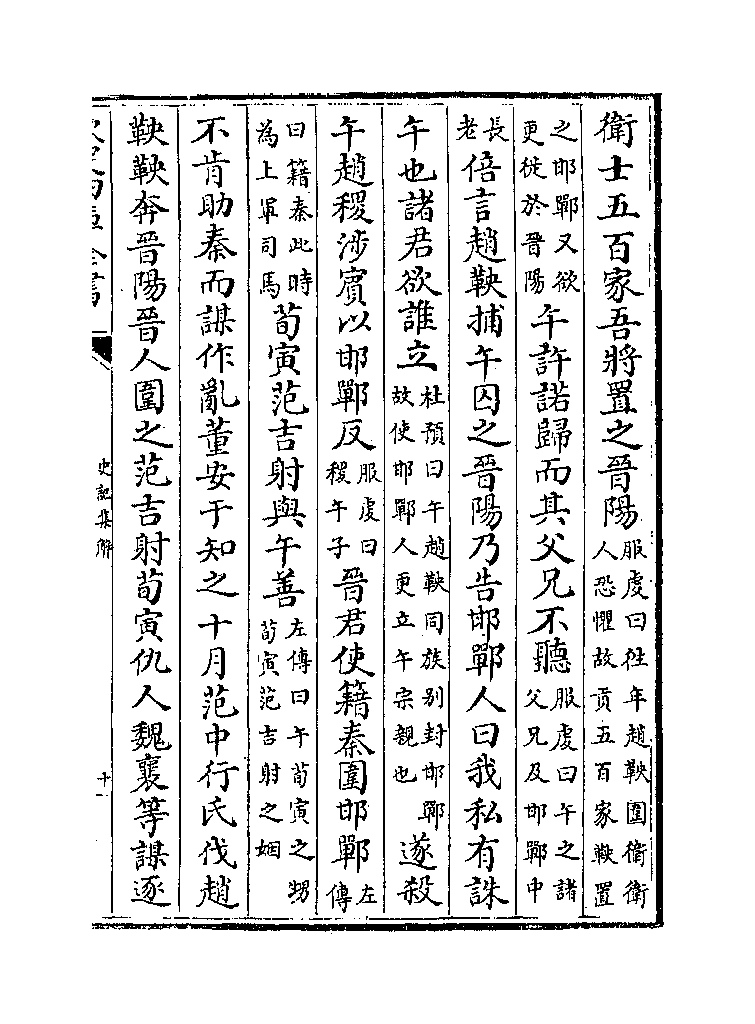 衛士五百家吾將置之晉陽服虔曰往年趙鞅圍衛衛人恐懼故貢五百家鞅置
之邯鄲又欲更徙於晉陽午許諾歸而其父兄不聽服虔曰午之諸父兄及邯鄲中
長老倍言趙鞅捕午囚之晉陽乃告邯鄲人曰我私有誅
午也諸君欲誰立杜預曰午趙鞅同族别封邯鄲故使邯鄲人更立午宗親也遂殺
午趙稷涉賓以邯鄲反服虔曰稷午子晉君使籍秦圍邯鄲左傳
曰籍秦此時為上軍司馬荀寅范吉射與午善左傳曰午荀寅之甥荀寅范吉射之姻
不肯助秦而謀作亂董安于知之十月范中行氏伐趙
鞅鞅奔晉陽晉人圍之范吉射荀寅仇人魏襄等謀逐
史記集解